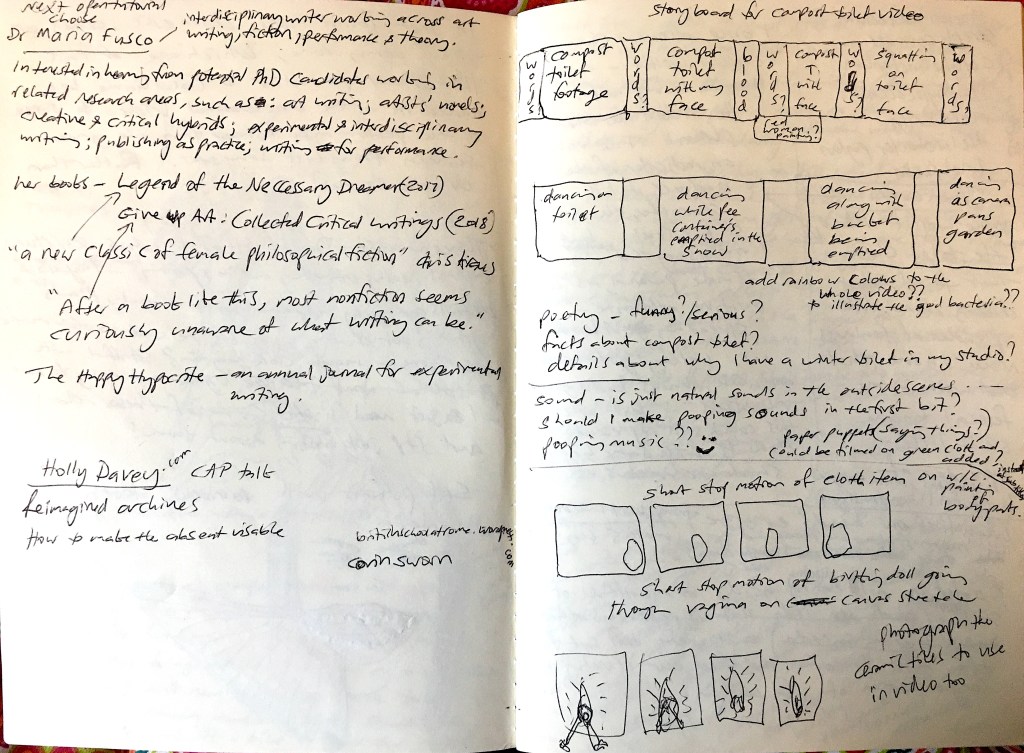 Next open tutorial
choose
Dr Maria Fusco / interdisciplinary writer working across art
writing, fiction, performance & theory.
Interested in hearing from potential PhD candidates working in
related research areas, such as: art writing; artists' novels;
creative & critical hybrids; experimental & interdisciplinary
writing; publishing as practice; writing for performance.
her books - Legend of the Neccessary Dreamer (2017)
Give up Art: Collected Critical Writings (2018)
"a new classic of female philosophical fiction" chris kraus
"After a book like this, most nonfiction seems
curiously unaware of what writing can be."
The Happy Hypocrite - an annual journal for experimental
writing.
Holly Davey.com CAP talk
Reimagined archives
How to make the absent visable
britishschoolatrome.wordpress.com
corin sworn
storyboard for compost toilet video
words?
compost toilet footage
words?
compost toilet with my face
blood
words?
compost T with face
words?
squatting on toilet face
words?
red woman painting?
dancing on toilet
dancing while pee containers emptied in the snow
dancing along with bucket being emptied
dancing as camera pans garden
add rainbow colours to the
whole video??
to illustrate the good bacteria??
poetry - funny?/serious?
facts about compost toilet?
details about why I have a winter toilet in my studio?
sound - is just natural sounds in the outside scenes
should I make pooping sounds in the first bit?
pooping music??
paper puppets (saying things?)
could be filmed on green cloth and
added?
instead of subtitles
short stop motion of cloth item on w/c
painting
of
body parts.
short stop motion of birthing doll going
through vagina on canvas stretcher
photograph the
ceramic tiles to use
in video too